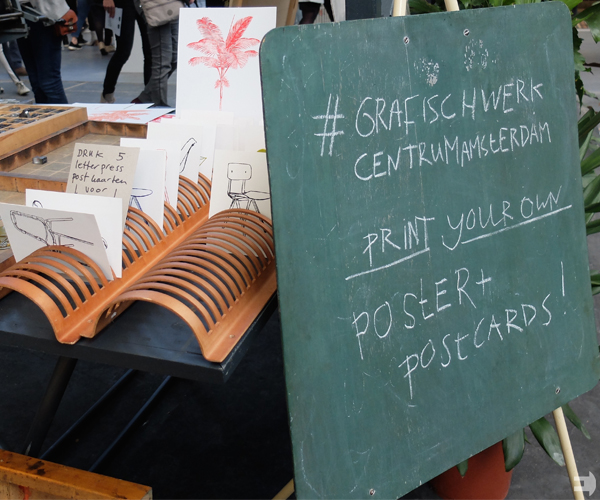 # GRAFISCHWERK
CENTRUMAMSTERDAM
PRINT YOUR OWN
POSTER +
POSTCARDS!
DRUK 5
letterpress
postkaarten
! voor !